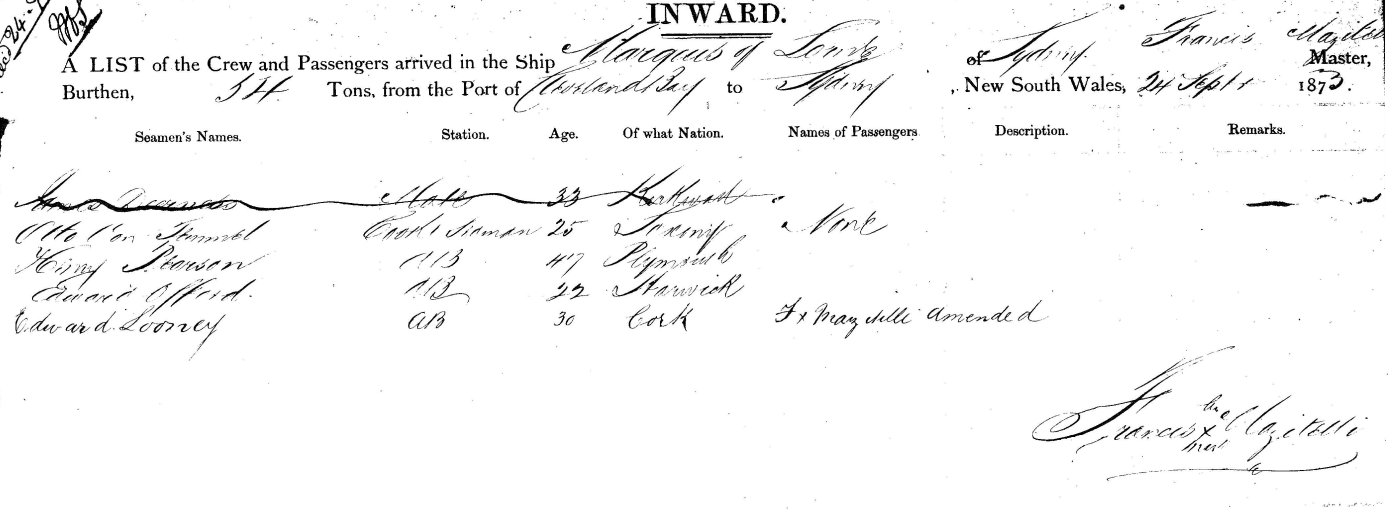 INWARD.
A LIST of the Crew and Passengers arrived in the Ship Marquis of Lorne of Sydney Francis Master,
Burthen, 54 Tons, from the Port of Cleveland Bay to Sydney, New South Wales, 24 Septr 1873.
Seamen's Names. Station. Age. Of what Nation. Names of Passengers Description. Remarks.
James Mate 33 Kirkwall
Otto Von Cook & Seaman 25 Saxony None
Henry Pearson AB 47 Plymouth
Edward Offord. AB 22 Harwich
Edward Looney AB 30 Cork F x Mazitelli amended
his
Francis x Mazitelli
mark